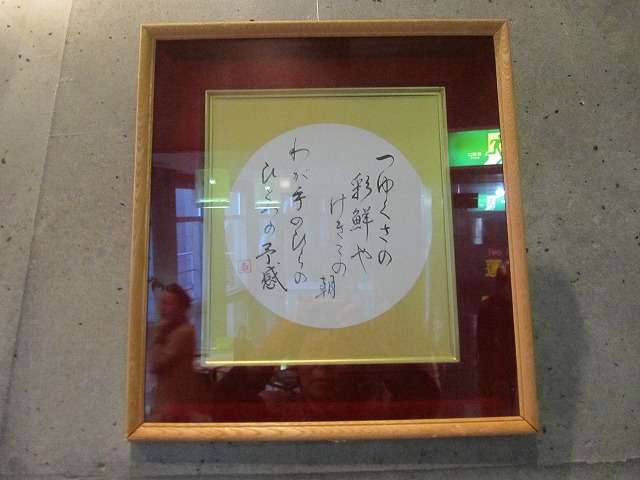 つゆくさの
彩鮮や
けさこの
朝
わが手のひらの
ひとつの予感